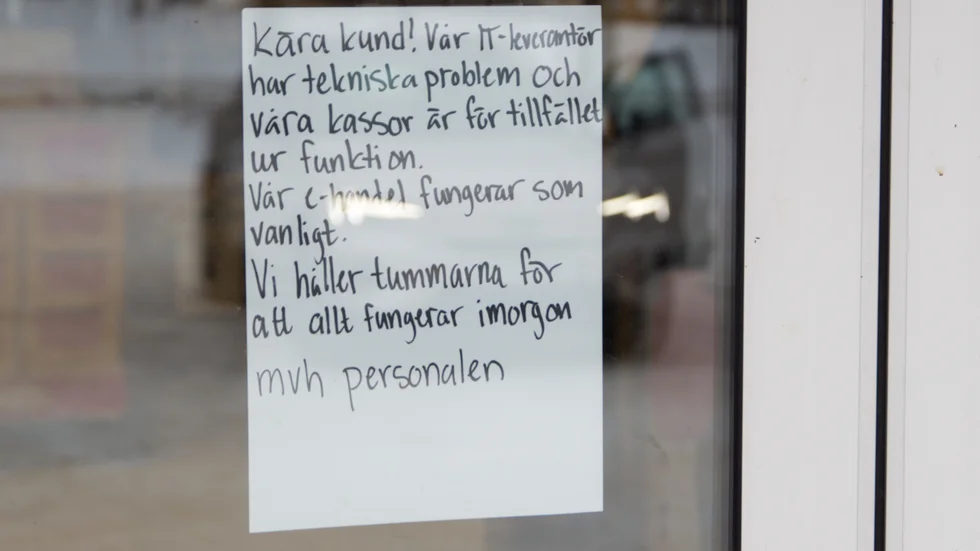 Kära kund! Vår IT-leverantör
har tekniska problem och
våra kassor är för tillfället
ur funktion.
Vår e-handel fungerar som
vanligt.
Vi håller tummarna för
att allt fungerar imorgon
mvh personalen